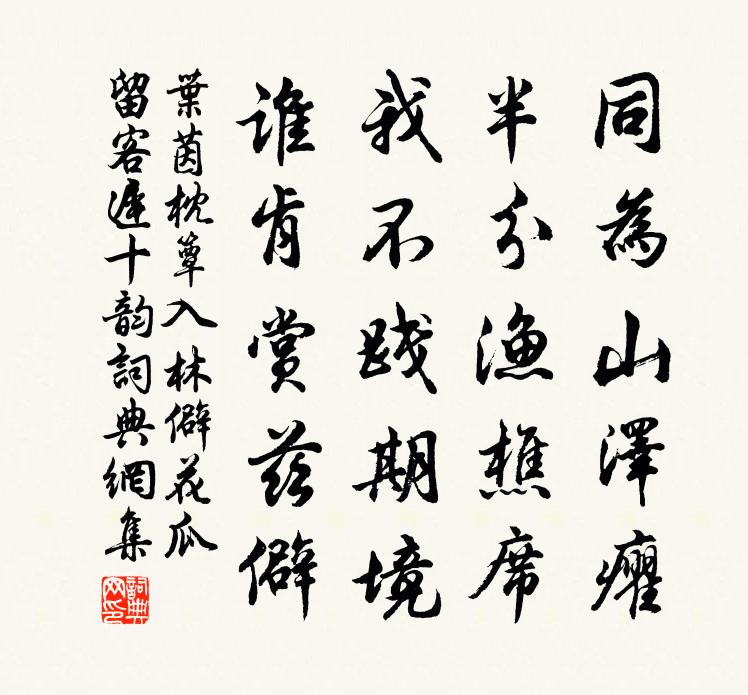 同為山澤癯
半分漁樵席
我不踐期境
誰肯賞茲僻
葉茵枕簟入林僻花瓜
留客遲十韵詞典網集
詞典
网印